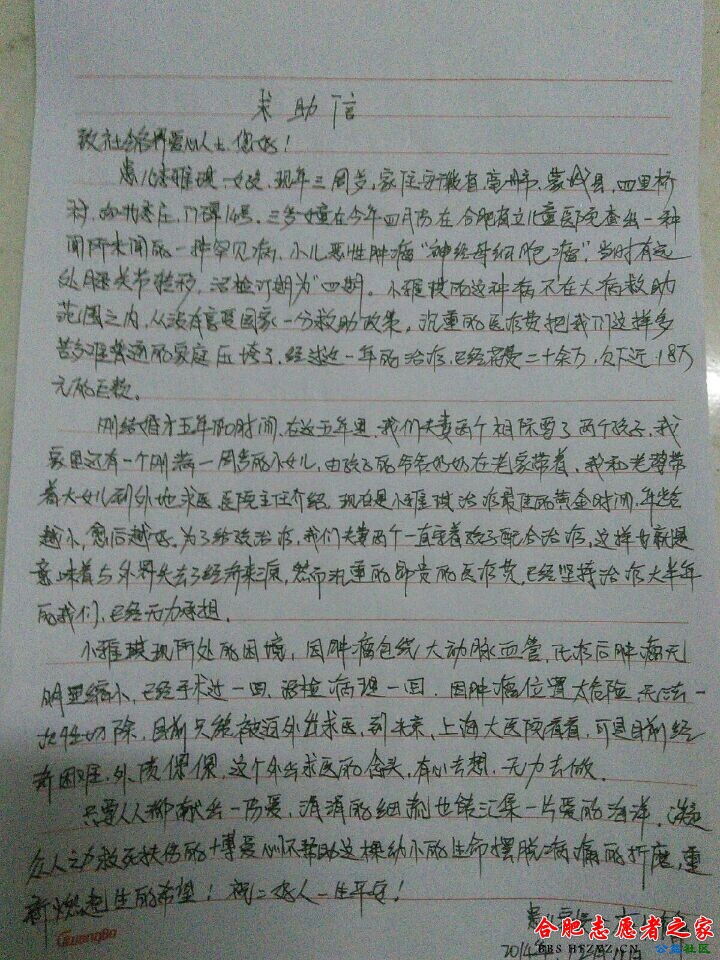 求助信
致社会各界爱心人士您好！
患儿雅琪，女孩，现年三周岁，家住安徽省亳州市，蒙城县，四里桥
村，庄，门牌14号，三岁女童在今年四月份在合肥省立儿童医院查出一种
闻所未闻的一种罕见病，小儿恶性肿瘤“神经母细胞瘤”，当时有远
处膝关节转移，活检订期为“四期。小雅琪的这种病不在大病救助
范围之内，从没有享受国家一分救助政策，沉重的医疗费把我们这样多
苦多难普通的家庭压垮了，经过近一年的治疗，已经花费二十余万，欠下近18万
元的巨款。
刚结婚才五年的时间，在这五年里，我们夫妻两个相际要了两个孩子，我
家里还有一个刚满一周岁的小女儿，由孩子的爷爷奶奶在老家带着，我和老婆带
着大女儿到外地求医，医院主任介绍，现在是小雅琪治疗最佳的黄金时间，年龄
越小，愈后越好。为了给孩治疗，我们夫妻两个一直守着孩子配合治疗，这样也就是
意味着与外界失去了经济来源，然而沉重的昂贵的医疗费，已经坚持治疗大半年
的我们，已经无力承担。
小雅琪现所处的困境，因肿瘤包绕大动脉血管，化疗后肿瘤无
明显缩小，已经手术近一回，活检病理一回，因肿瘤位置太危险，无法一
次性切除，目前只能被迫外出求医，到北京、上海大医院看看，可是目前经
济困难，外债倮倮，这个外出求医的念头，有心去想，无力去做。
只要人人都献出一份爱，涓涓的细流也能汇集一片爱的海洋，凝
众人之力救死扶伤的博爱心怀帮助这棵幼小的生命摆脱病痛的折磨，重
新燃起生的希望！祝：好人一生平安！
2014年12月
Guangbo
合肥志愿者之家
BBS.HFZYZ.CN
公益社区